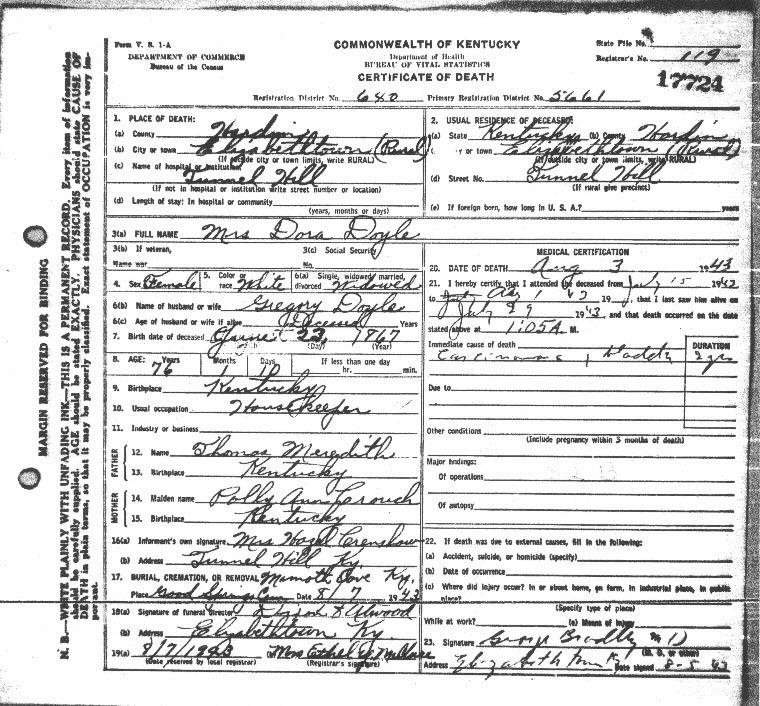 Form V. S. 1-A
DEPARTMENT OF COMMERCE
Bureau of the Census
COMMONWEALTH OF KENTUCKY
Department of Health
BUREAU OF VITAL STATISTICS
CERTIFICATE OF DEATH
State File No.
Registrar's No. 119
17724
Registration District No. 680 Primary Registration District No. 5661
1. PLACE OF DEATH:
(a) County Hardin
(b) City or town Elizabethtown (Rural)
(If outside city or town limits, write RURAL)
(c) Name of hospital or institution
Tunnel Hill
(If not in hospital or institution write street number or location)
(d) Length of stay: In hospital or community
(years, months or days)
2. USUAL RESIDENCE OF DECEASED:
(a) State Kentucky (b) County Hardin
(c) City or town Elizabethtown (Rural)
(If outside city or town limits, write RURAL)
(d) Street No. Tunnel Hill
(If rural give precinct)
(e) If foreign born, how long in U. S. A.? years
3(a) FULL NAME Mrs Dora Doyle
3(b) If veteran, 3(c) Social Security
Name war No.
4. Sex Female 5. Color or race White 6(a) Single, widowed, married, divorced Widowed
6(b) Name of husband or wife Gregory Doyle
6(c) Age of husband or wife if alive Deceased Years
7. Birth date of deceased June 23, 1867
(Day) (Year)
8. AGE: Years Months Days If less than one day
76 1 10 hr. min.
9. Birthplace Kentucky
10. Usual occupation Housekeeper
11. Industry or business
FATHER
12. Name Thomas Meredith
13. Birthplace Kentucky
MOTHER
14. Maiden name Polly Ann Crouch
15. Birthplace Kentucky
16(a) Informant's own signature Mrs Hazel Crenshaw
(b) Address Tunnel Hill Ky.
17. BURIAL, CREMATION, OR REMOVAL Mamoth Cave Ky.
Place Good Springs Cem Date 8/7 1943
18(a) Signature of funeral director Atwood
(b) Address Elizabethtown Ky
19(a) 8/7/1943 (b) Mrs Ethel
(Date received by local registrar) (Registrar's signature)
MEDICAL CERTIFICATION
20. DATE OF DEATH Aug 3 1943
21. I hereby certify that I attended the deceased from July 15 1942
to Aug 1 19, that I last saw him alive on
July 29 1943, and that death occurred on the date
stated above at 1:05 A. M.
Immediate cause of death DURATION
Carcinoma, bladder 2 yrs
Due to
Other conditions
(Include pregnancy within 3 months of death)
Major findings:
Of operations
Of autopsy
22. If death was due to external causes, fill in the following:
(a) Accident, suicide, or homicide (specify)
(b) Date of occurrence
(c) Where did injury occur? In or about home, on farm, in industrial place, in public place?
(Specify type of place)
While at work? (e) Means of injury
23. Signature George Bradley M D
(M. D. or other)
Address Elizabethtown Ky Date signed 8-5 43
MARGIN RESERVED FOR BINDING
N. B.—WRITE PLAINLY WITH UNFADING INK—THIS IS A PERMANENT RECORD. Every item of information
should be carefully supplied. AGE should be stated EXACTLY. PHYSICIANS should state CAUSE OF
DEATH in plain terms, so that it may be properly classified. Exact statement of OCCUPATION is very im-
portant.